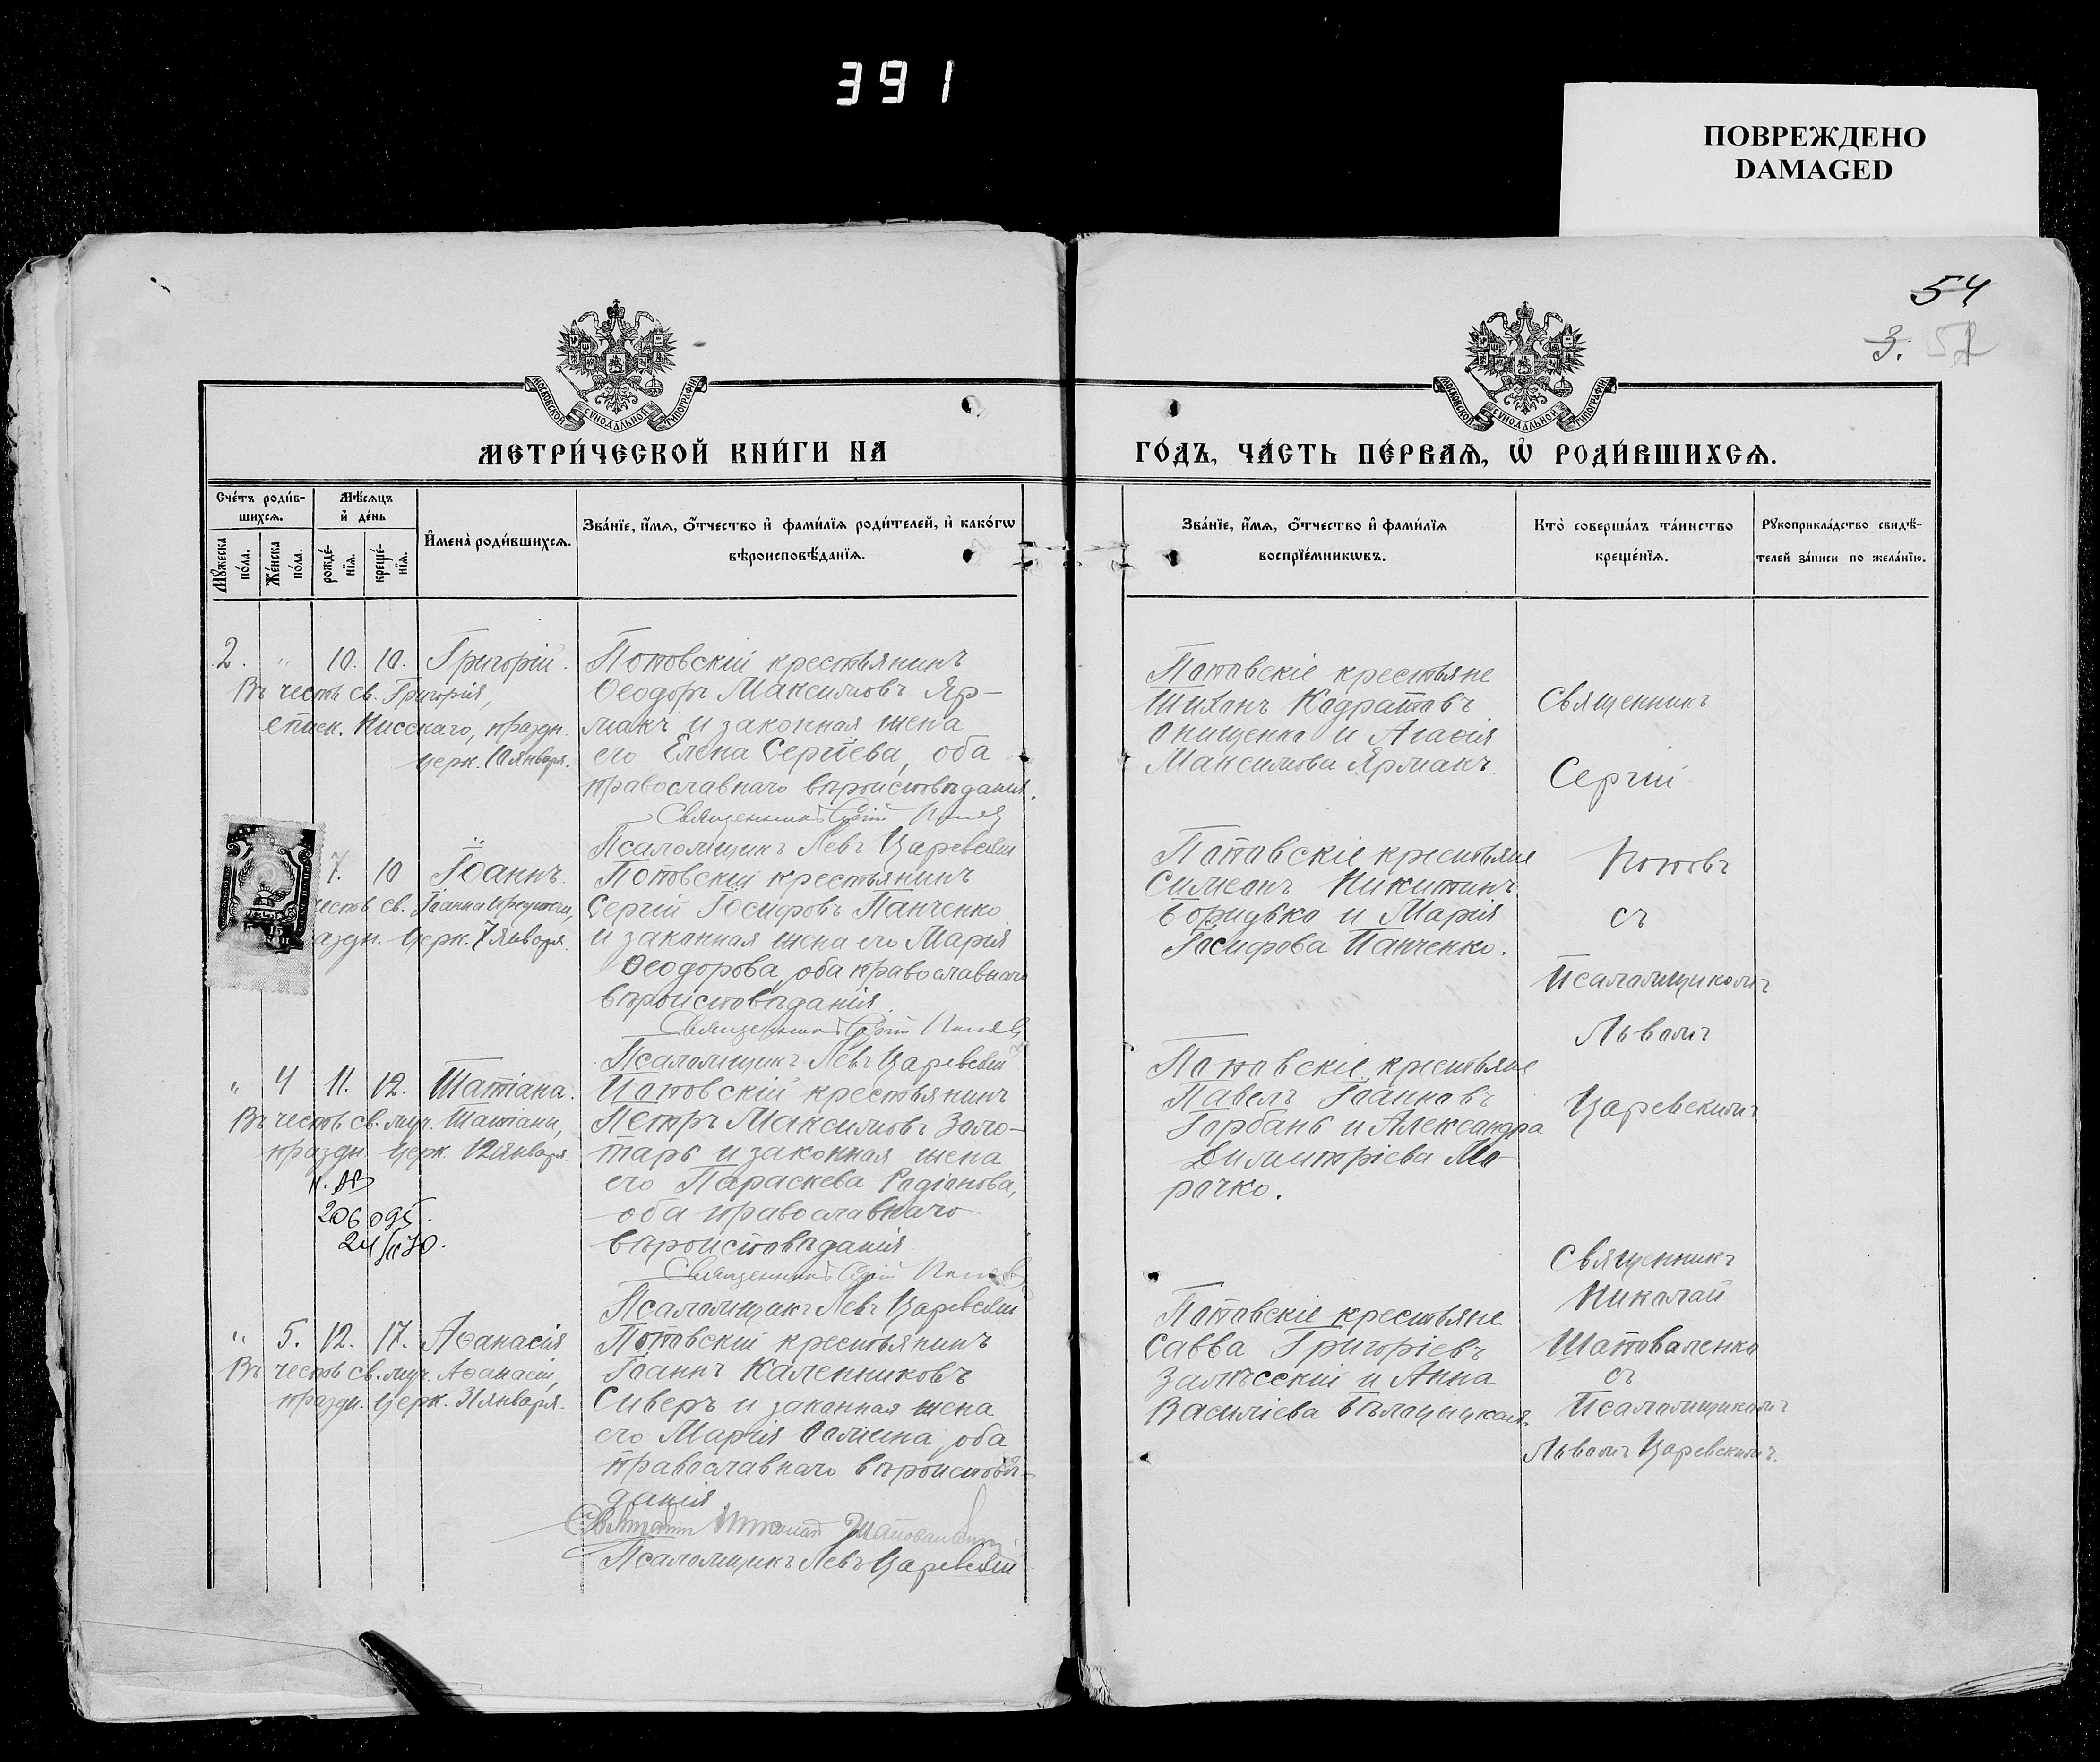 391
ПОВРЕЖДЕНО
DAMAGED
54
3.
МОСКОВСКОЙ СѴНОДАЛЬНОЙ ТИПОГРАФІИ
МОСКОВСКОЙ СѴНОДАЛЬНОЙ ТИПОГРАФІИ
МЕТРИ́ЧЕСКОЙ КНИ́ГИ НА
ГО́ДЪ, ЧА́СТЬ ПЕ́РВАѦ, Ѡ҆ РОДИ́ВШИХСѦ.
Сче́тъ роди́в-
шихсѧ.
Мꙋ́жеска по́ла.
Же́нска по́ла.
Мѣ́сѧцъ
и҆ де́нь
рожде́-нїѧ.
креще́-нїѧ.
И҆мена̀ роди́вшихсѧ.
Зва́нїе, и҆́мѧ, ѻ҆́тчество и҆ фами́лїѧ роди́телей, и҆ како́гѡ
вѣроисповѣ́данїѧ.
Зва́нїе, и҆́мѧ, ѻ҆́тчество и҆ фами́лїѧ
воспрїе́мникѡвъ.
Кто̀ соверша́лъ та́инство
креще́нїѧ.
Рꙋкоприкла́дство свидѣ́-
телей за́писи по жела́нїю.
2. " 10. 10. Григорій.
Въ честь св. Григорія,
еписк. Нисскаго, праздн.
церк. 10 января.
Поповскій крестьянинъ
Ѳеодоръ Максимовъ Яр-
макъ и законная жена
его Елена Сергіева, оба
православнаго вѣроисповѣданія.
Священникъ Сергій Поповъ
Псаломщикъ Левъ Царевскій
Поповскіе крестьяне
Тихонъ Кодратовъ
Онищенко и Агаѳія
Максимова Ярмакъ.
Священникъ
Сергій
Поповъ
съ
Псаломщикомъ
Львомъ
Царевскимъ
7. 10 Іоаннъ.
честь св. Іоанна Предтечи,
аздн. церк. 7 января.
15 15
КОП
Поповскій крестьянинъ
Сергій Іосифовъ Панченко
и законная жена его Марія
Ѳеодорова, оба православнаго
вѣроисповѣданія.
Священникъ Сергій Поповъ
Псаломщикъ Левъ Царевскій
Поповскіе крестьяне
Симеонъ Никитинъ
Боридько и Марія
Іосифова Панченко.
" 4 11. 12. Татіана.
Въ честь св. муч. Татіаны,
праздн. церк. 12 января.
206095.
24/II 70.
Поповскій крестьянинъ
Петръ Максимовъ Золо-
тарь и законная жена
его Параскева Радіонова,
оба православнаго
вѣроисповѣданія
Священникъ Сергій Поповъ
Псаломщикъ Левъ Царевскій
Поповскіе крестьяне
Павелъ Іоанновъ
Горбань и Александра
Димитріева Мо-
рочко.
" 5. 12. 17. Аѳанасія
Въ честь св. муч. Аѳанасіи,
праздн. церк. 31 января.
Поповскій крестьянинъ
Іоаннъ Каленниковъ
Сиверъ и законная жена
его Марія Ѳомина, оба
православнаго вѣроисповѣ-
данія
Священникъ Николай Шаповаленко
Псаломщикъ Левъ Царевскій
Поповскіе крестьяне
Савва Григоріевъ
Залѣсскій и Анна
Василіева Бѣлоцыцкая.
Священникъ
Николай
Шаповаленко
съ
Псаломщикомъ
Львомъ Царевскимъ.